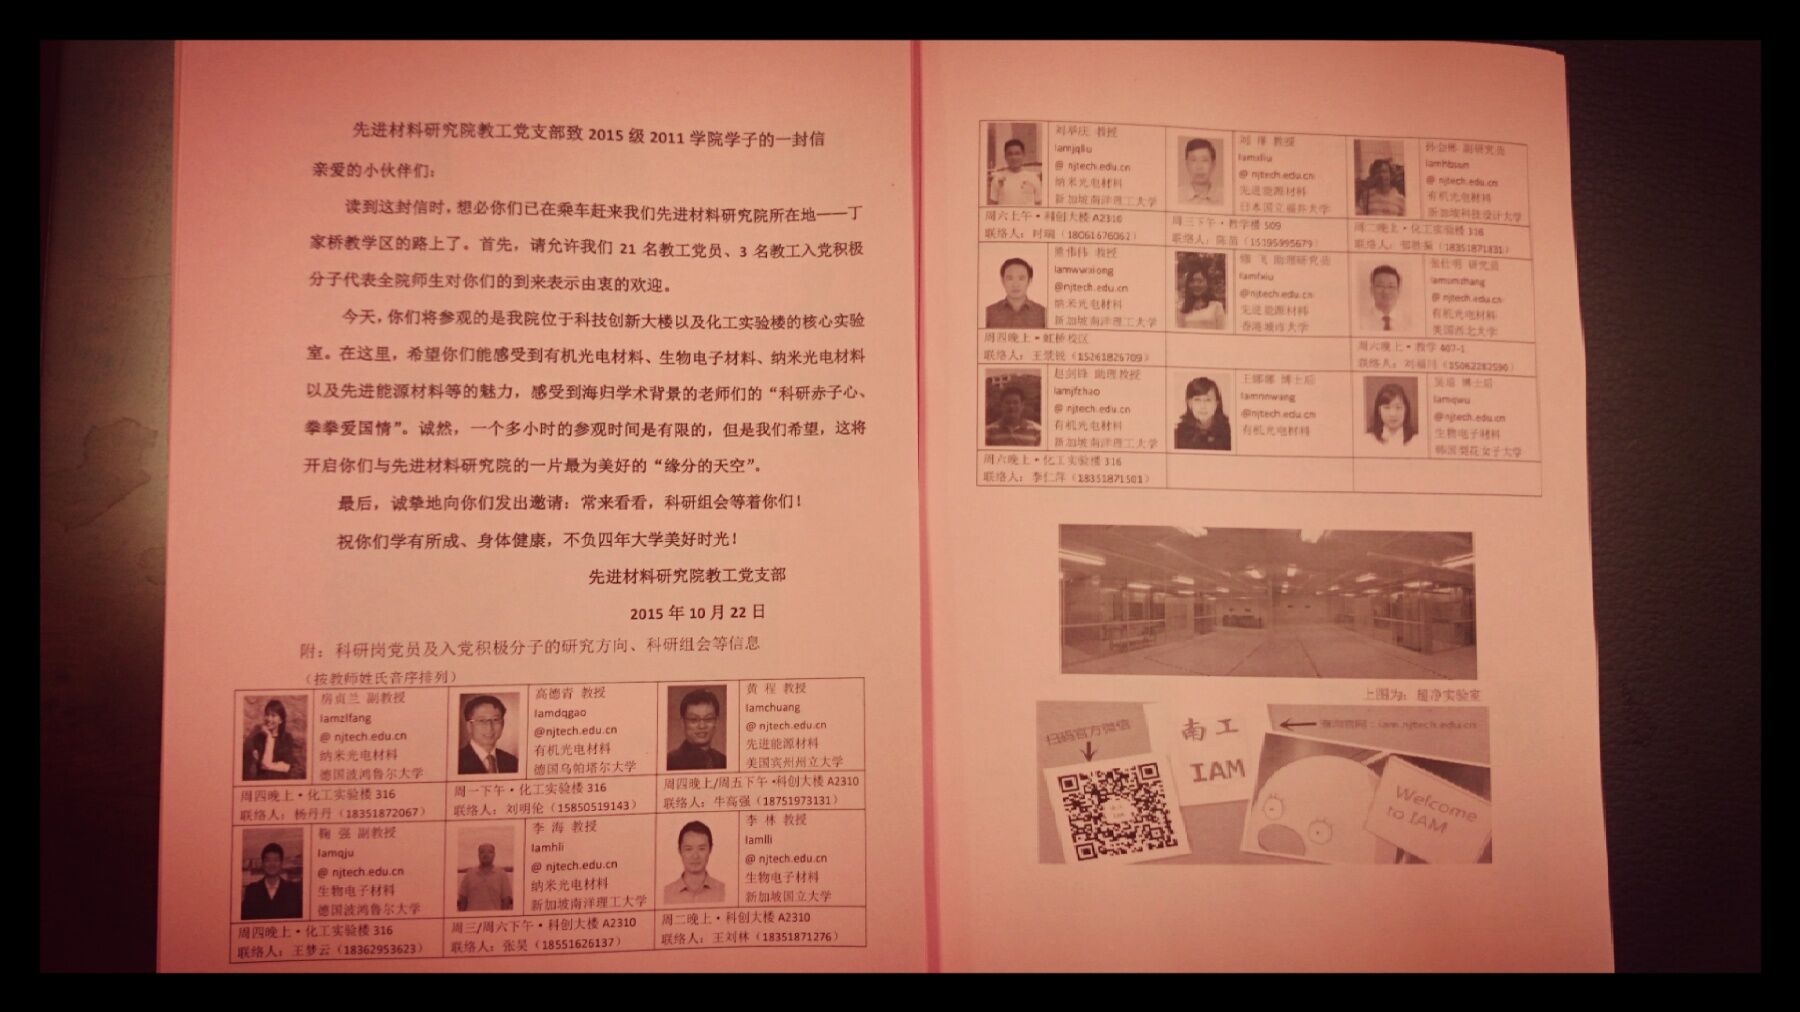 先进材料研究院教工党支部致 2015 级 2011 学院学子的一封信
亲爱的小伙伴们：
读到这封信时，想必你们已在乘车赶来我们先进材料研究院所在地——丁
家桥教学区的路上了。首先，请允许我们 21 名教工党员、3 名教工入党积极
分子代表全院师生对你们的到来表示由衷的欢迎。
今天，你们将参观的是我院位于科技创新大楼以及化工实验楼的核心实验
室。在这里，希望你们能感受到有机光电材料、生物电子材料、纳米光电材料
以及先进能源材料等的魅力，感受到海归学术背景的老师们的“科研赤子心、
拳拳爱国情”。诚然，一个多小时的参观时间是有限的，但是我们希望，这将
开启你们与先进材料研究院的一片最为美好的“缘分的天空”。
最后，诚挚地向你们发出邀请：常来看看，科研组会等着你们！
祝你们学有所成、身体健康，不负四年大学美好时光！
先进材料研究院教工党支部
2015 年 10 月 22 日
附：科研岗党员及入党积极分子的研究方向、科研组会等信息
（按教师姓氏音序排列）
房贞兰 副教授
Iamzlfang
@ njtech.edu.cn
纳米光电材料
德国波鸿鲁尔大学
周四晚上·化工实验楼 316
联络人：杨丹丹（18351872067）
高德青 教授
Iamdqgao
@njtech.edu.cn
有机光电材料
德国乌帕塔尔大学
周一下午·化工实验楼 316
联络人：刘明伦（15850519143）
黄 程 教授
Iamchuang
@ njtech.edu.cn
先进能源材料
美国宾州州立大学
周四晚上/周五下午·科创大楼 A2310
联络人：牛高强（18751973131）
鞠 强 副教授
Iamqju
@ njtech.edu.cn
生物电子材料
德国波鸿鲁尔大学
周四晚上·化工实验楼 316
联络人：王梦云（18362953623）
李 海 教授
Iamhli
@ njtech.edu.cn
纳米光电材料
新加坡南洋理工大学
周三/周六下午·科创大楼 A2310
联络人：张昊（18551626137）
李 林 教授
Iamlli
@ njtech.edu.cn
生物电子材料
新加坡国立大学
周二晚上·科创大楼 A2310
联络人：王刘林（18351871276）
刘举庆 教授
Iamjqliu
@ njtech.edu.cn
纳米光电材料
新加坡南洋理工大学
周六上午·科创大楼 A2310
联络人：时瑞（18061676062）
教授
@ njtech.edu.cn
先进能源材料
日本国立福井大学
周三下午·教学楼 509
联络人：陈苗（15195995679）
副研究员
Iamhbsun
@ njtech.edu.cn
有机光电材料
新加坡科技设计大学
周二晚上·化工实验楼 316
（18351871831）
熊伟伟 教授
Iamwwxiong
@njtech.edu.cn
纳米光电材料
新加坡南洋理工大学
周四晚上·虹桥校区
联络人：王景锐（15261826709）
飞 助理研究员
Iamfxiu
@njtech.edu.cn
先进能源材料
香港城市大学
张仕明 研究员
Iamsmzhang
@ njtech.edu.cn
有机光电材料
美国西北大学
周六晚上·教学 407-1
联络人：刘福川（15062282590）
赵剑锋 助理教授
Iamjfzhao
@ njtech.edu.cn
有机光电材料
新加坡南洋理工大学
周六晚上·化工实验楼 316
联络人：李仁萍（18351871501）
王娜娜 博士后
Iamnnwang
@njtech.edu.cn
有机光电材料
吴琼 博士后
Iamqwu
@njtech.edu.cn
生物电子材料
韩国梨花女子大学
上图为：超净实验室
扫码官方微信
南工
IAM
查询官网：iam.njtech.edu.cn
Welcome
to IAM